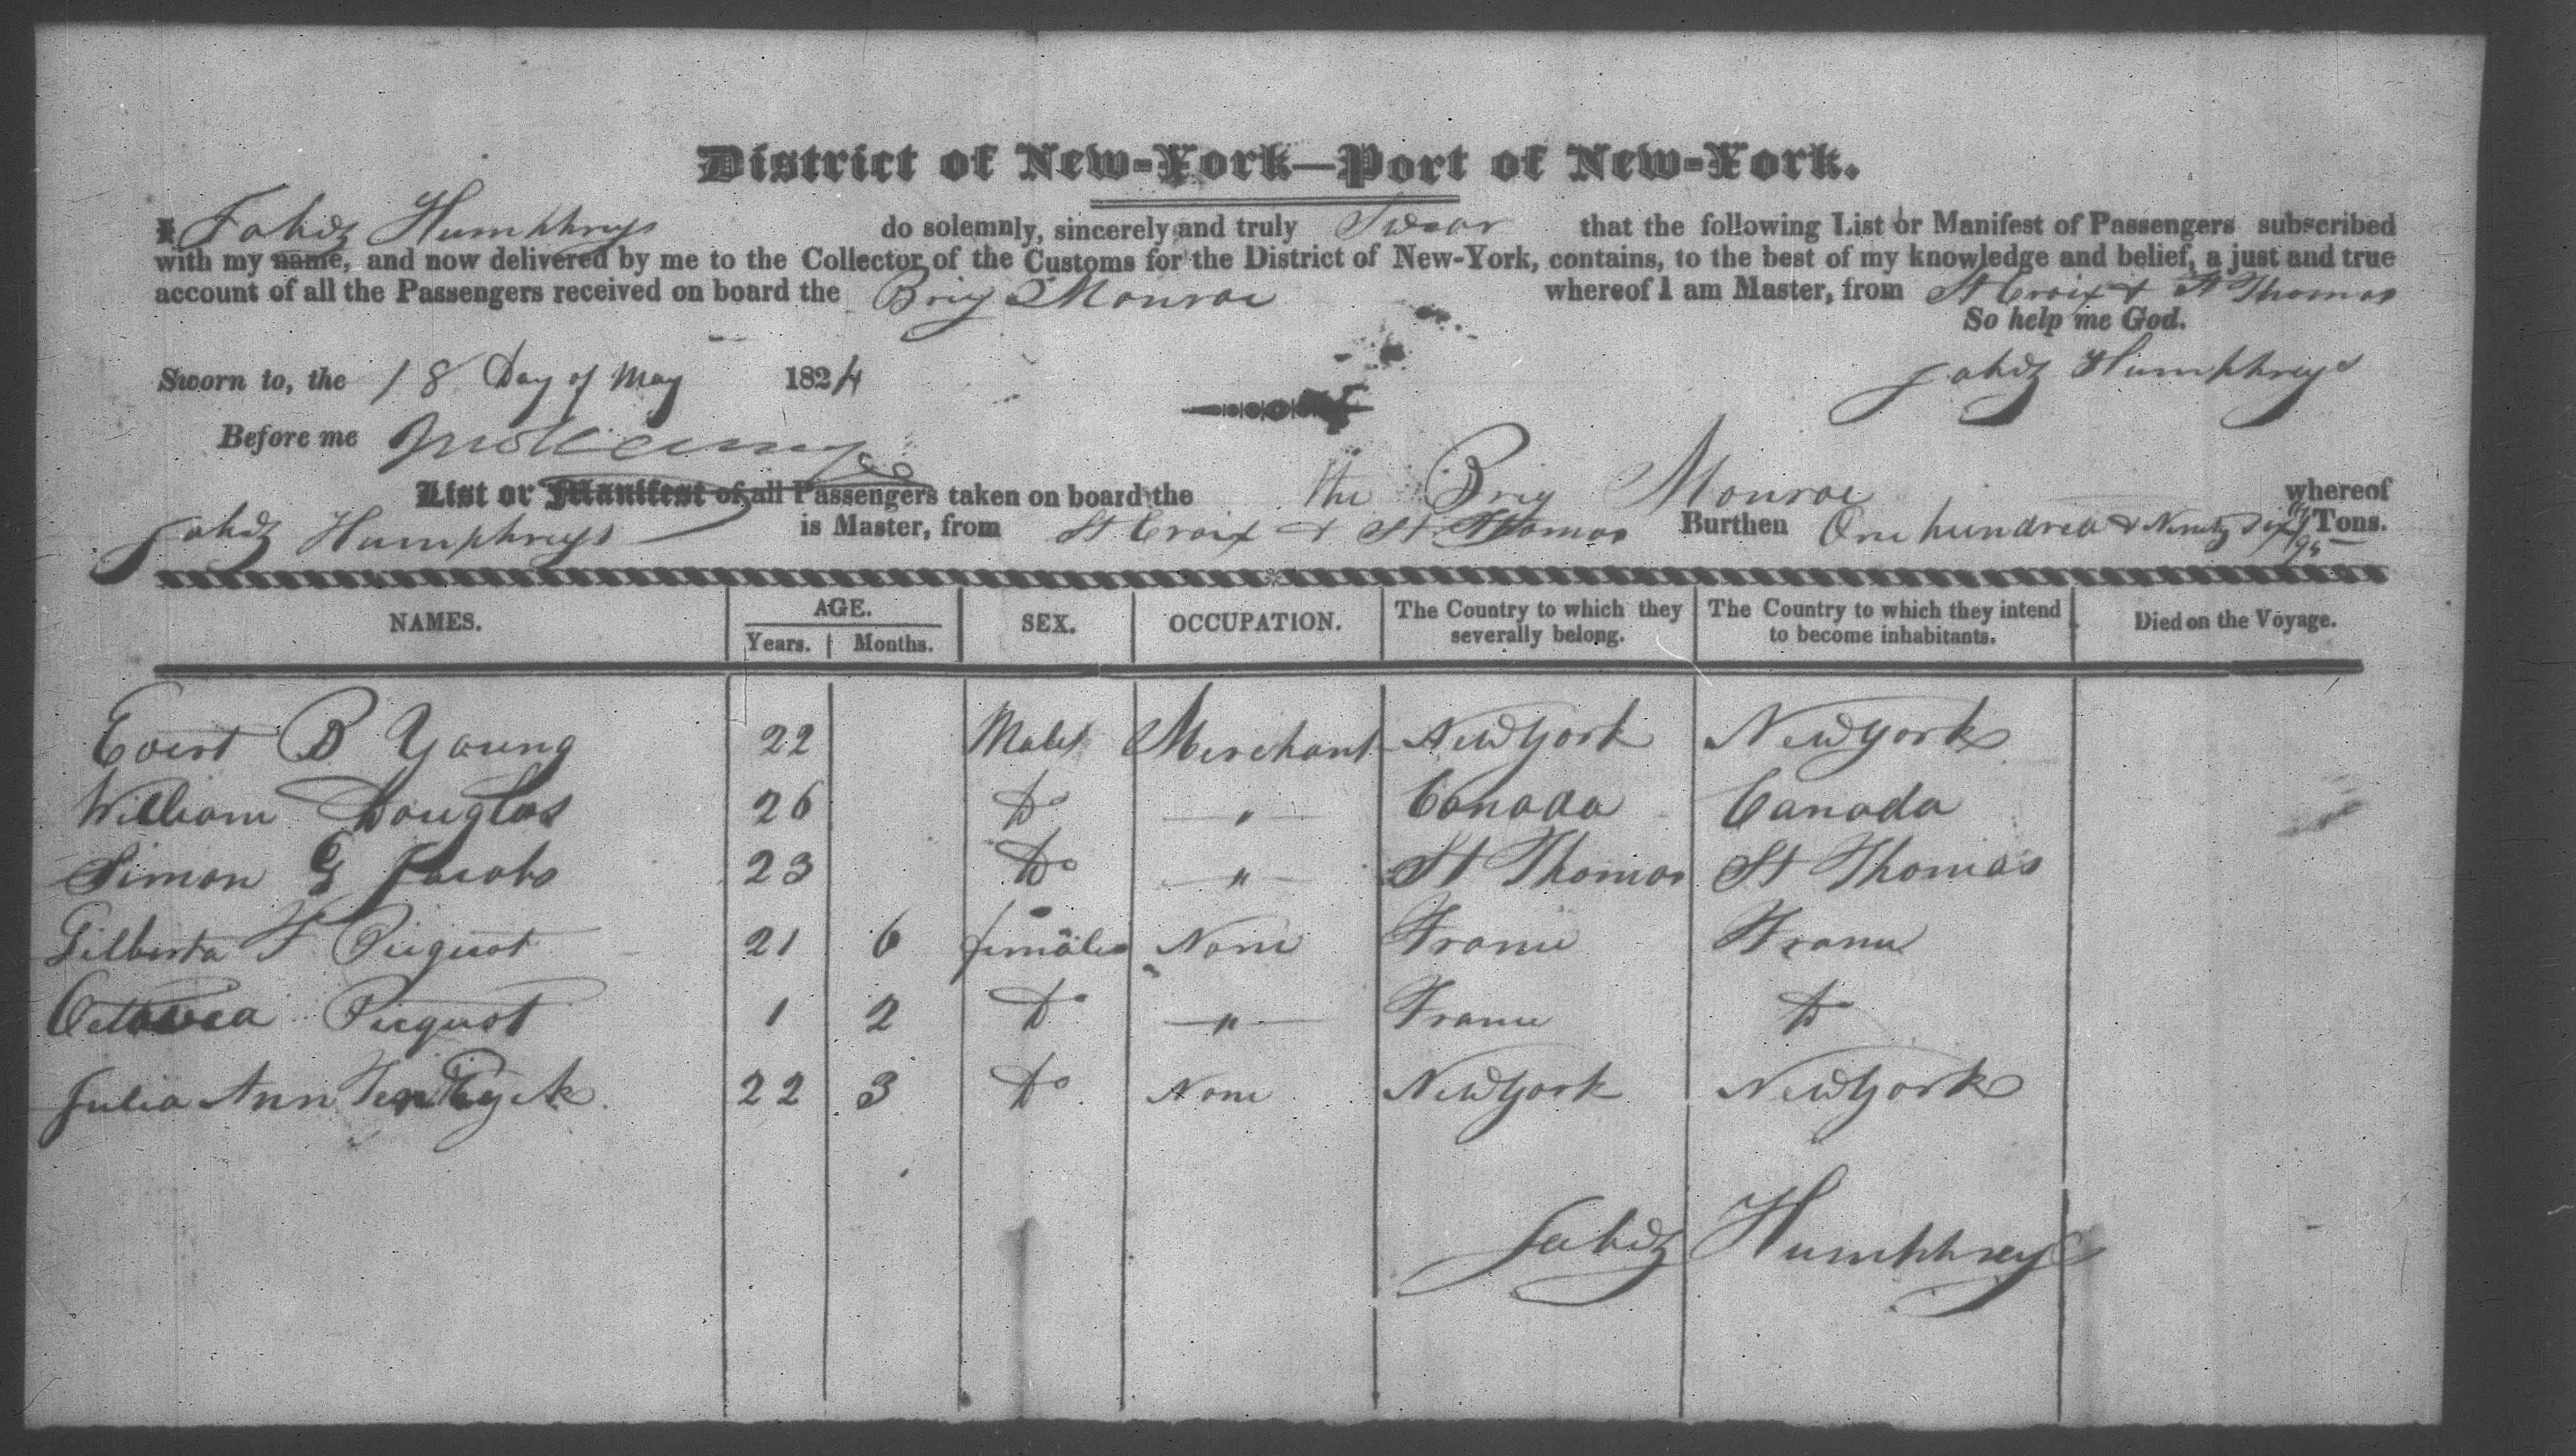 District of New-York—Port of New-York.
I Jabez Humphreys do solemnly, sincerely and truly Swear that the following List or Manifest of Passengers subscribed
with my name, and now delivered by me to the Collector of the Customs for the District of New-York, contains, to the best of my knowledge and belief, a just and true
account of all the Passengers received on board the Brig Monroe whereof I am Master, from St Croix & St Thomas
So help me God.
Sworn to, the 18 Day of May 1824 Jabez Humphreys
Before me
List or Manifest of all Passengers taken on board the the Brig Monroe whereof
Jabez Humphreys is Master, from St Croix & St Thomas Burthen One hundred & Ninety Six Tons.
NAMES. AGE. SEX. OCCUPATION. The Country to which they severally belong. The Country to which they intend to become inhabitants. Died on the Voyage.
Years. Months.
Evert B Young 22 Males Merchant New York New York
William Douglas 26 Do " Canada Canada
Simon G Jacobs 23 Do " St Thomas St Thomas
Gilberta F Picquot 21 6 females None France France
Octavea Picquot 1 2 Do " France Do
Julia Ann Ten Eyck 22 3 Do None New York New York
Jabez Humphreys